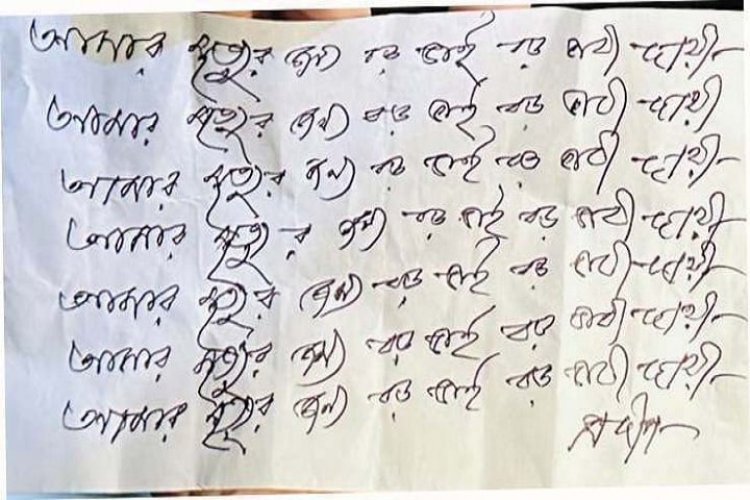 আমার মৃত্যুর জন্য বড় ভাই বড় ভাবী দায়ী
আমার মৃত্যুর জন্য বড় ভাই বড় ভাবী দায়ী
আমার মৃত্যুর জন্য বড় ভাই বড় ভাবী দায়ী
আমার মৃত্যুর জন্য বড় ভাই বড় ভাবী দায়ী
আমার মৃত্যুর জন্য বড় ভাই বড় ভাবী দায়ী
আমার মৃত্যুর জন্য বড় ভাই বড় ভাবী দায়ী
আমার মৃত্যুর জন্য বড় ভাই বড় ভাবী দায়ী